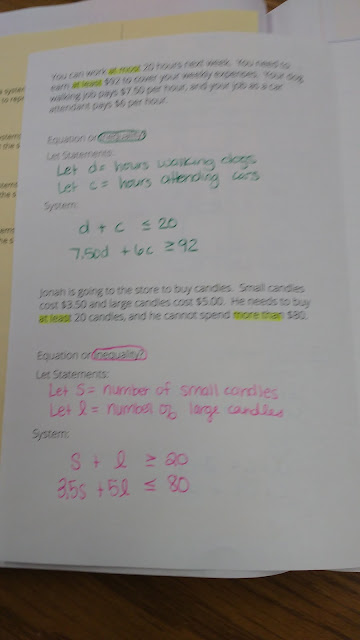 You can work at most 20 hours next week. You need to
earn at least $92 to cover your weekly expenses. Your dog
walking job pays $7.50 per hour, and your job as a car
attendant pays $6 per hour.
Equation or inequality?
Let Statements:
Let d = hours walking dogs
Let c = hours attending cars
System:
d + c ≤ 20
7.50d + 6c ≥ 92
Jonah is going to the store to buy candles. Small candles
cost $3.50 and large candles cost $5.00. He needs to buy
at least 20 candles, and he cannot spend more than $80.
Equation or inequality?
Let Statements:
Let S = number of small candles
Let l = number of large candles
System:
S + l ≥ 20
3.5s + 5l ≤ 80